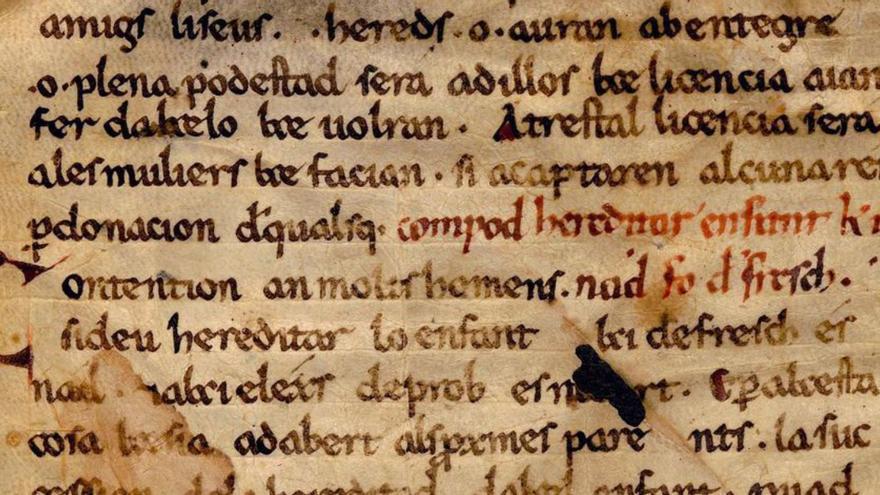 amigs liseus. · hereds · o · auran abentegre
· o · plena podestad sera adillos ke licencia aian
fer dakelo ke uolran · Atrestal licencia sera
ales muliers ke facian · si acaptaren alcuna re
ꝑ donacion d qualsq · compod hereditar enfant k
Ontention an moltes homens. nad fo d fresch ·
si deu hereditar lo enfant ki de fresch es
nad · aki eleixs de prob es
cosa kesia adabert als ꝓxmes pare nts. la suc
cession del hereditad dakel enfant